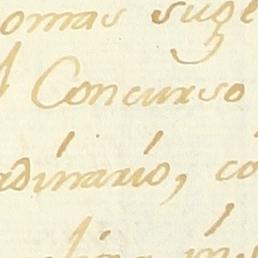 omas suge
l Concurso
rdinario, co